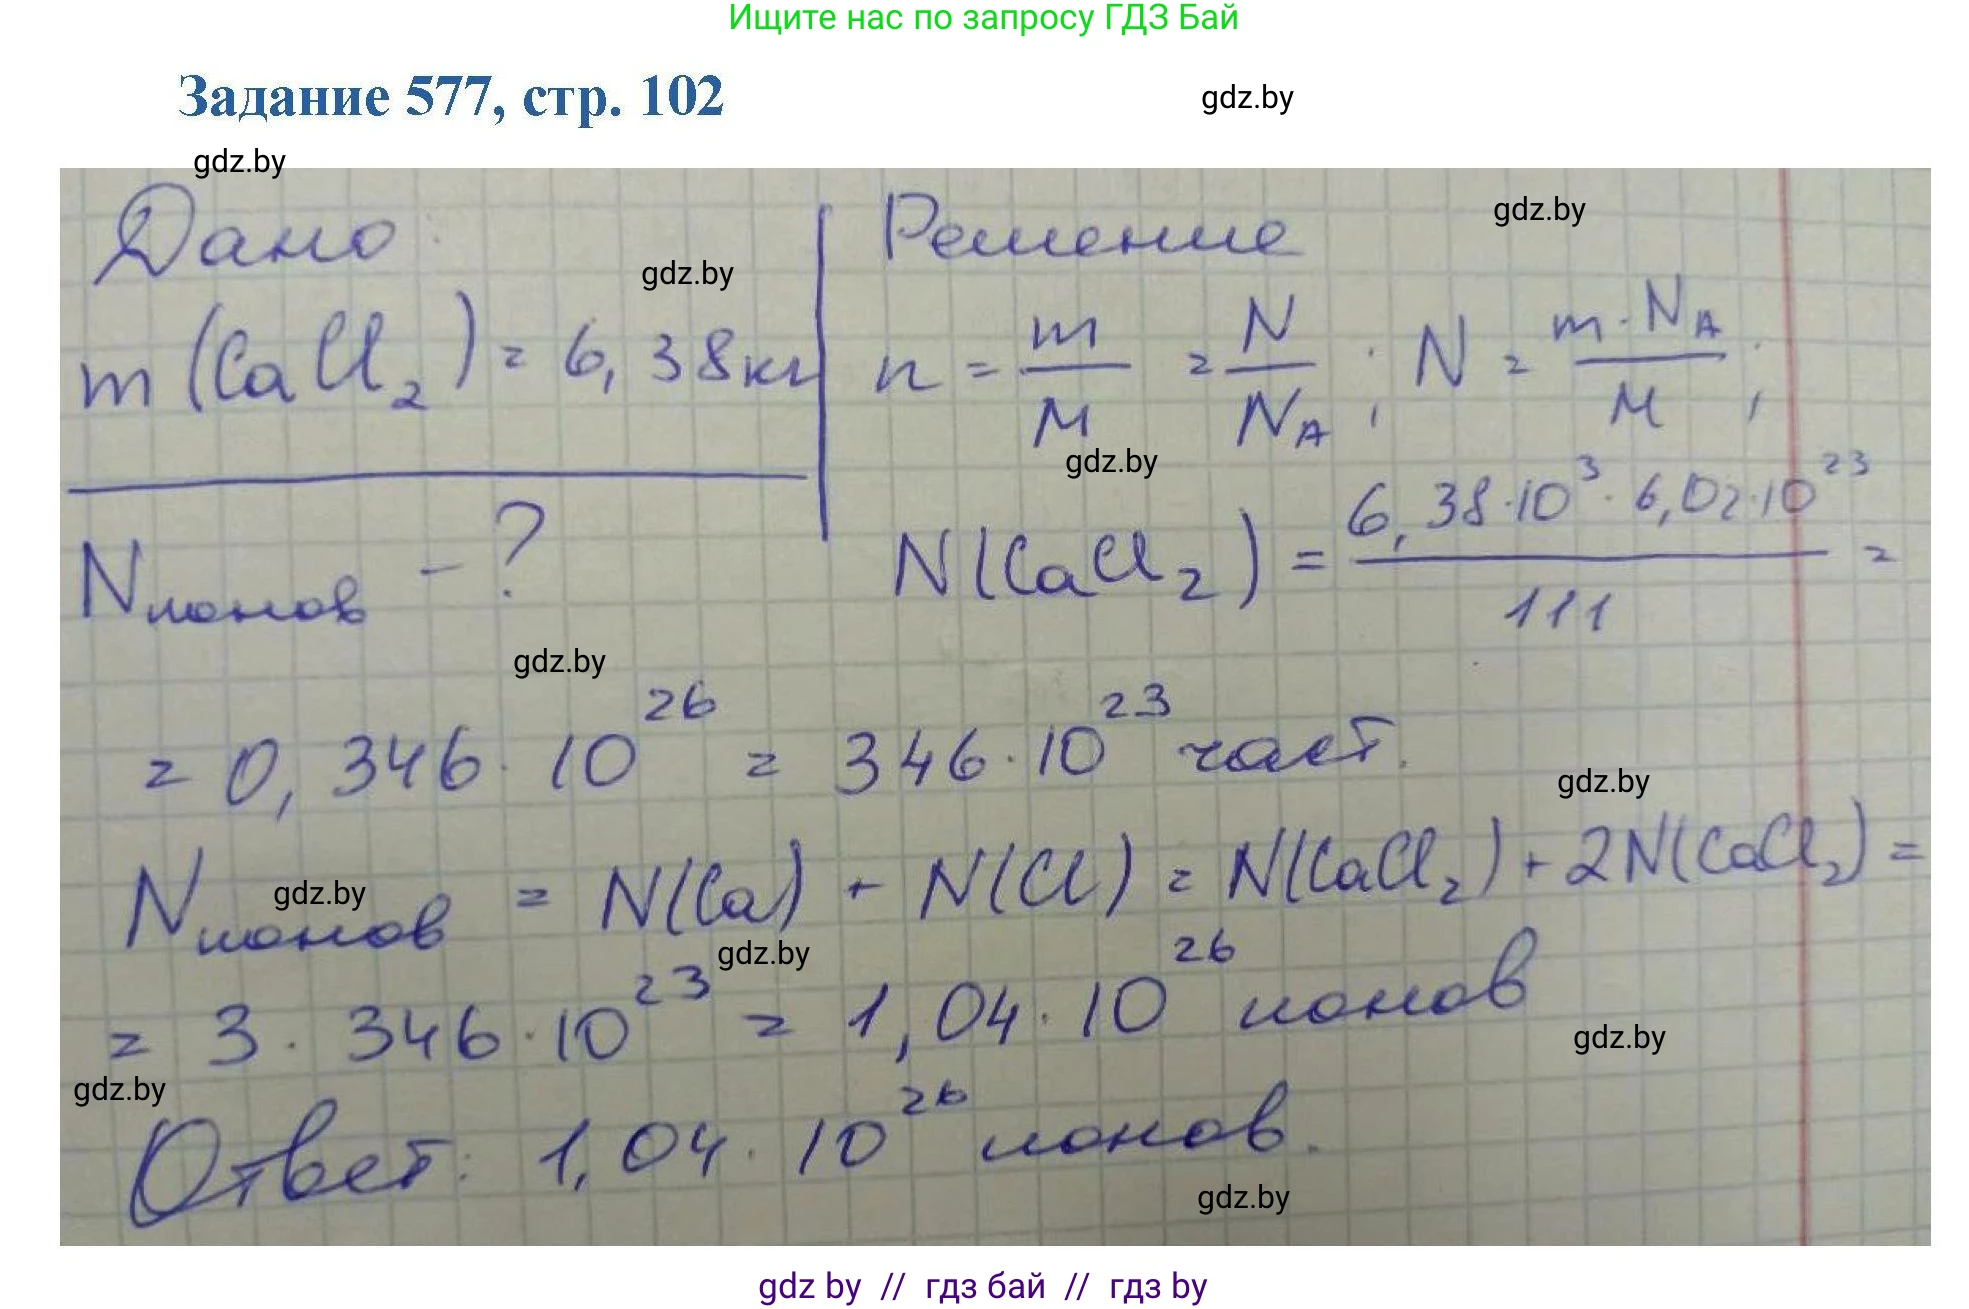 Ищите нас по запросу ГДЗ Бай
Задание 577, стр. 102
gdz.by
gdz.by
Дано:
m(CaCl₂) = 6,38кг
Nионов - ?
gdz.by
Решение
gdz.by
n = m/M = N/Nᴀ; N = m·Nᴀ/M;
gdz.by
N(CaCl₂) = 6,38·10³·6,02·10²³/111 =
gdz.by
= 0,346·10²⁶ = 346·10²³ част.
gdz.by
Nионов = N(Ca) + N(Cl) = N(CaCl₂) + 2N(CaCl₂) =
gdz.by
gdz.by
= 3·346·10²³ = 1,04·10²⁶ ионов
gdz.by
gdz.by
Ответ: 1,04·10²⁶ ионов.
gdz.by
gdz by // гдз бай // гдз by